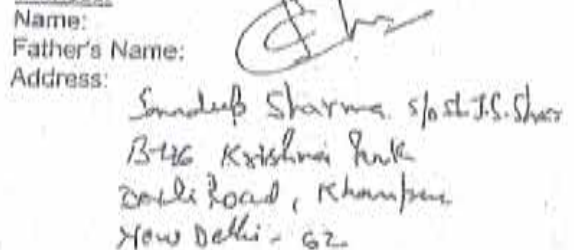 Name:
Father's Name:
Address:
Sandeep Sharma s/o Sh. J.S. Sharma
Krishna Park
Road, Khanpur
New Delhi - 62